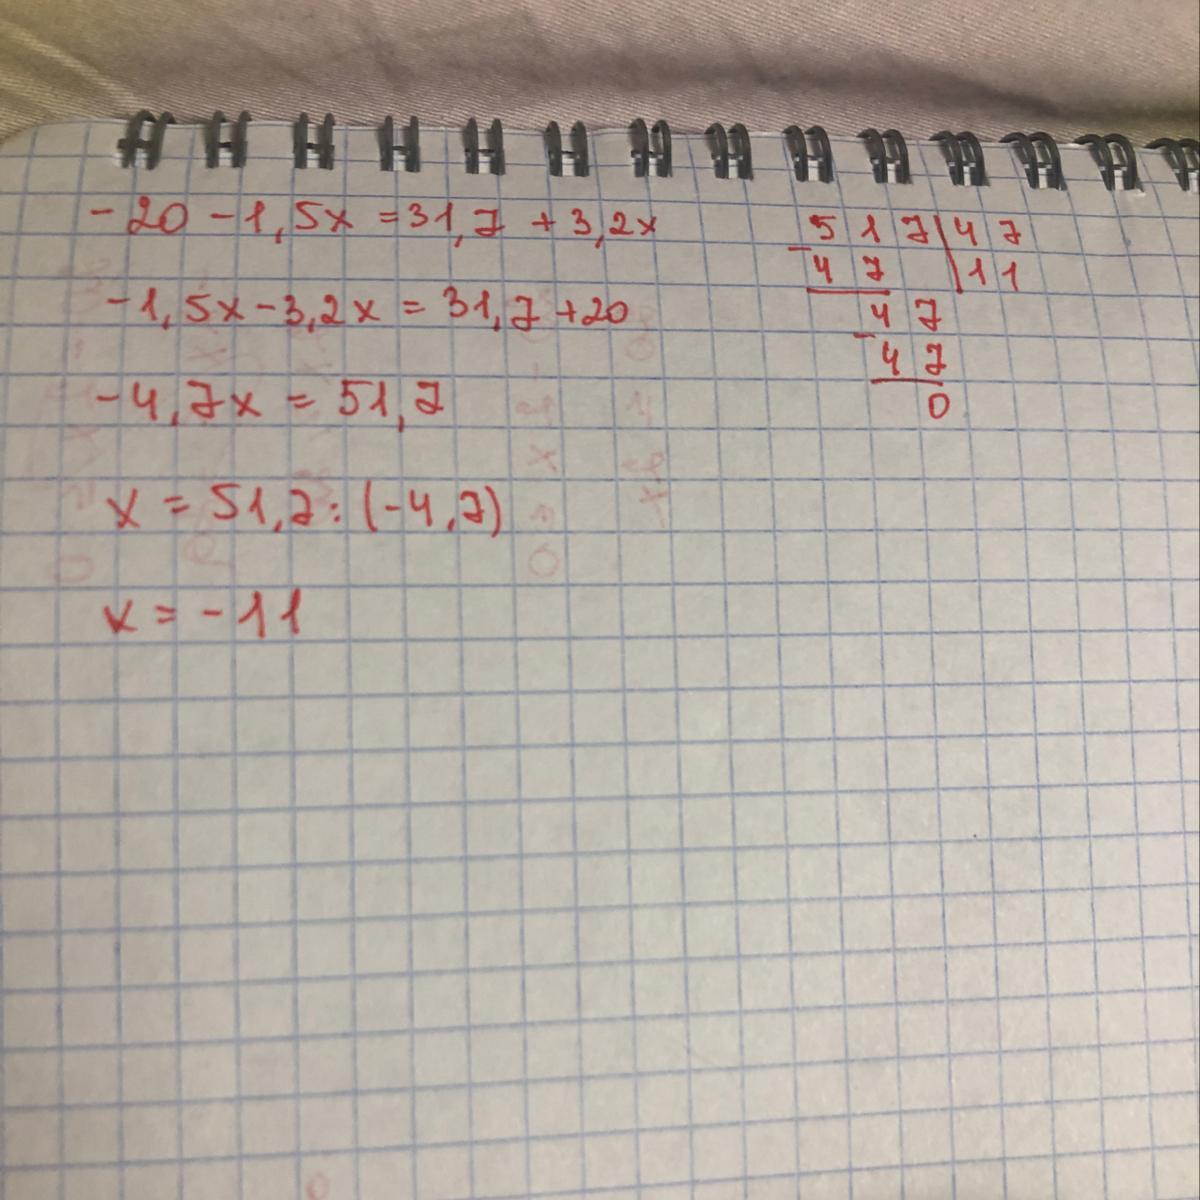 -20 - 1,5x = 31,7 + 3,2x
-1,5x - 3,2x = 31,7 + 20
-4,7x = 51,7
x = 51,7 : (-4,7)
x = -11
517 | 47
- 47 | 11
47
- 47
0